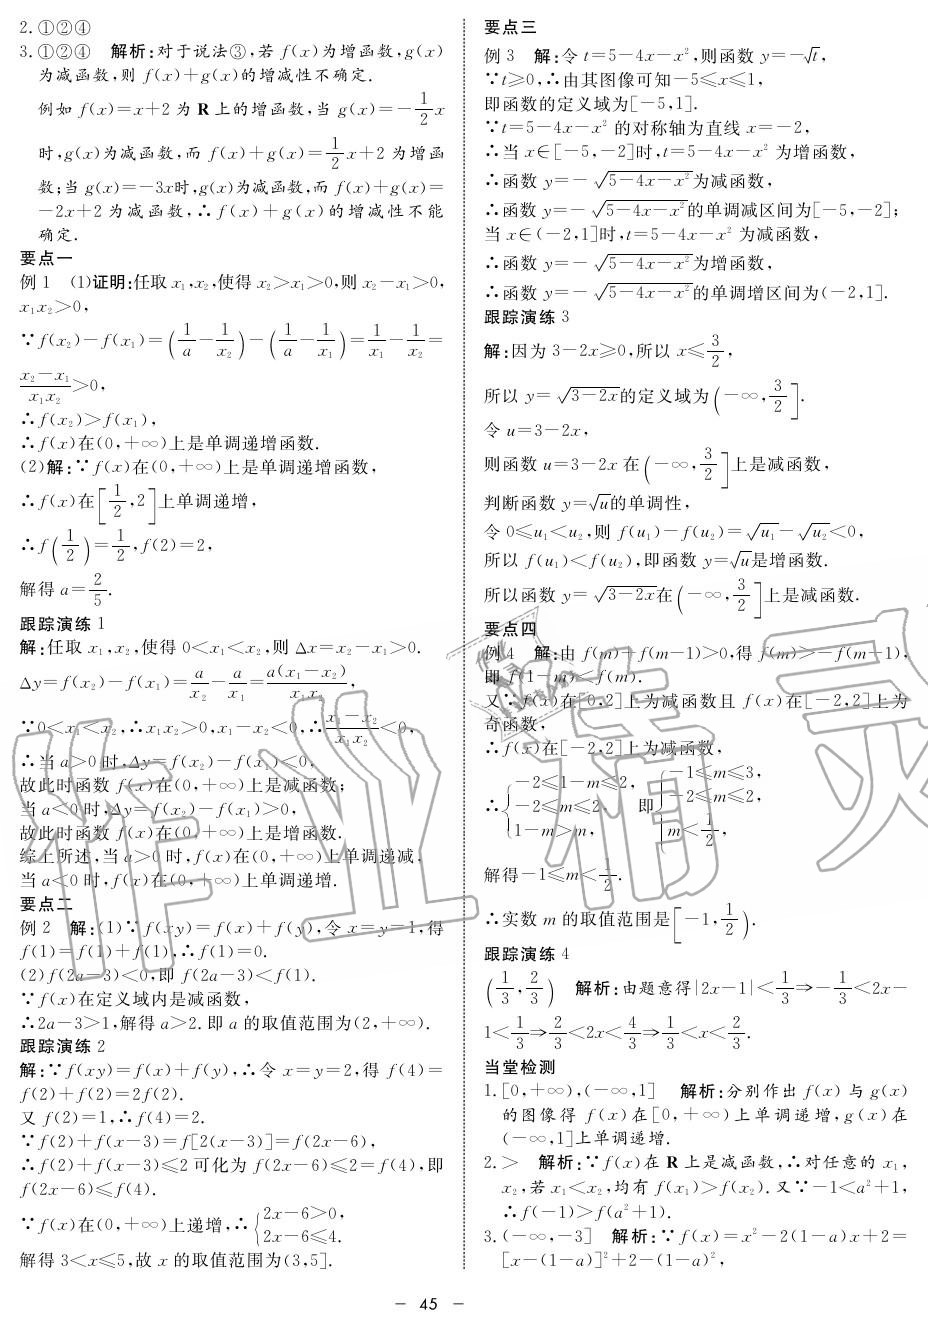 2. ①②④
3. ①②④ 解析:对于说法③,若 f(x)为增函数,g(x)
为减函数,则 f(x)+g(x)的增减性不确定.
例如 f(x)=x+2 为 R 上的增函数,当 g(x)=-1/2x
时,g(x)为减函数,而 f(x)+g(x)=1/2x+2 为增函
数;当 g(x)=-3x时,g(x)为减函数,而 f(x)+g(x)=
-2x+2 为减函数,∴f(x)+g(x)的增减性不能
确定.
要点一
例 1 (1)证明:任取 x₁,x₂,使得 x₂>x₁>0,则 x₂-x₁>0,
x₁x₂>0,
∵f(x₂)-f(x₁)=(1/a-1/x₂)-(1/a-1/x₁)=1/x₁-1/x₂=
(x₂-x₁)/(x₁x₂)>0,
∴f(x₂)>f(x₁),
∴f(x)在(0,+∞)上是单调递增函数.
(2)解:∵f(x)在(0,+∞)上是单调递增函数,
∴f(x)在[1/2,2]上单调递增,
∴f(1/2)=1/2,f(2)=2,
解得 a=2/5.
跟踪演练 1
解:任取 x₁,x₂,使得 0<x₁<x₂,则 Δx=x₂-x₁>0.
Δy=f(x₂)-f(x₁)=a/x₂-a/x₁=a(x₁-x₂)/(x₁x₂),
∵0<x₁<x₂,∴x₁x₂>0,x₁-x₂<0,∴(x₁-x₂)/(x₁x₂)<0,
∴当 a>0 时,Δy=f(x₂)-f(x₁)<0,
故此时函数 f(x)在(0,+∞)上是减函数;
当 a<0 时,Δy=f(x₂)-f(x₁)>0,
故此时函数 f(x)在(0,+∞)上是增函数.
综上所述,当 a>0 时,f(x)在(0,+∞)上单调递减,
当 a<0 时,f(x)在(0,+∞)上单调递增.
要点二
例 2 解:(1)∵f(xy)=f(x)+f(y),令 x=y=1,得
f(1)=f(1)+f(1),∴f(1)=0.
(2)f(2a-3)<0,即 f(2a-3)<f(1).
∵f(x)在定义域内是减函数,
∴2a-3>1,解得 a>2.即 a 的取值范围为(2,+∞).
跟踪演练 2
解:∵f(xy)=f(x)+f(y),∴令 x=y=2,得 f(4)=
f(2)+f(2)=2f(2).
又 f(2)=1,∴f(4)=2.
∵f(2)+f(x-3)=f[2(x-3)]=f(2x-6),
∴f(2)+f(x-3)≤2 可化为 f(2x-6)≤2=f(4),即
f(2x-6)≤f(4).
∵f(x)在(0,+∞)上递增,∴{2x-6>0,
2x-6≤4.
解得 3<x≤5,故 x 的取值范围为(3,5].
要点三
例 3 解:令 t=5-4x-x²,则函数 y=-√t,
∵t≥0,∴由其图像可知-5≤x≤1,
即函数的定义域为[-5,1].
∵t=5-4x-x² 的对称轴为直线 x=-2,
∴当 x∈[-5,-2]时,t=5-4x-x² 为增函数,
∴函数 y=-√(5-4x-x²)为减函数,
∴函数 y=-√(5-4x-x²)的单调减区间为[-5,-2];
当 x∈(-2,1]时,t=5-4x-x² 为减函数,
∴函数 y=-√(5-4x-x²)为增函数,
∴函数 y=-√(5-4x-x²)的单调增区间为(-2,1].
跟踪演练 3
解:因为 3-2x≥0,所以 x≤3/2,
所以 y=√(3-2x)的定义域为(-∞,3/2].
令 u=3-2x,
则函数 u=3-2x 在(-∞,3/2]上是减函数,
判断函数 y=√u的单调性,
令 0≤u₁<u₂,则 f(u₁)-f(u₂)=√u₁-√u₂<0,
所以 f(u₁)<f(u₂),即函数 y=√u是增函数.
所以函数 y=√(3-2x)在(-∞,3/2]上是减函数.
要点四
例 4 解:由 f(m)+f(m-1)>0,得 f(m)>-f(m-1),
即 f(1-m)<f(m).
又∵f(x)在[0,2]上为减函数且 f(x)在[-2,2]上为
奇函数,
∴f(x)在[-2,2]上为减函数,
∴{-2≤1-m≤2, 即{-1≤m≤3,
-2≤m≤2, -2≤m≤2,
1-m>m, m<1/2,
解得-1≤m<1/2.
∴实数 m 的取值范围是[-1,1/2).
跟踪演练 4
(1/3,2/3) 解析:由题意得|2x-1|<1/3⇒-1/3<2x-
1<1/3⇒2/3<2x<4/3⇒1/3<x<2/3.
当堂检测
1. [0,+∞),(-∞,1] 解析:分别作出 f(x) 与 g(x)
的图像得 f(x)在[0,+∞)上单调递增,g(x)在
(-∞,1]上单调递增.
2. > 解析:∵f(x)在 R 上是减函数,∴对任意的 x₁,
x₂,若 x₁<x₂,均有 f(x₁)>f(x₂).又∵-1<a²+1,
∴f(-1)>f(a²+1).
3. (-∞,-3] 解析:∵f(x)=x²-2(1-a)x+2=
[x-(1-a)]²+2-(1-a)²,
- 45 -
作业精灵